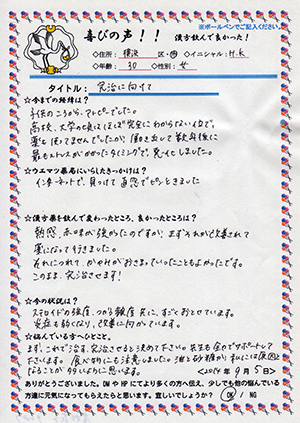 ※ボールペンでご記入ください。
喜びの声!! 漢方飲んで良かった!
◇住所: 横浜 区・市 ◇イニシャル: H.K
◇年齢: 30 ◇性別: 女
タイトル: 完治に向けて
☆今までの経緯は?
子供のころから、アトピーでした。
高校、大学の頃にはほぼ完全にわからないくらいで、
薬もぬってませんでしたが、働き出して数年後に
最もストレスがかかったタイミングで、悪化しました。
☆ウエマツ薬局にいらしたきっかけは?
インターネットで、見つけて直感でピンときました
☆漢方薬を飲んで変わったところ、良かったところは?
熱感、赤味が強かったのですが、まずそれが改善されて
楽になって行きました。
それにつれて、かゆみがおさまっていったこともよかったです。
このまま、完治させます!
☆今の状況は?
ステロイドの強度、つかう頻度共に、すごくおとせています。
炎症も弱くなり、改善に向かっています。
☆悩んでいる方へひとこと。
まず、これで治す、完治させると決めて下さい。先生も全力でサポートして
下さいます。食べものにも注意しました。油と砂糖が私には原因と
なることが多いように思います。
<2014年9月5日>
ありがとうございました。DMやHPにてより多くの方へ伝え、少しでも他の悩んでいる
方達に元気になってもらえたらと思います。宜しいでしょうか? OK / NG